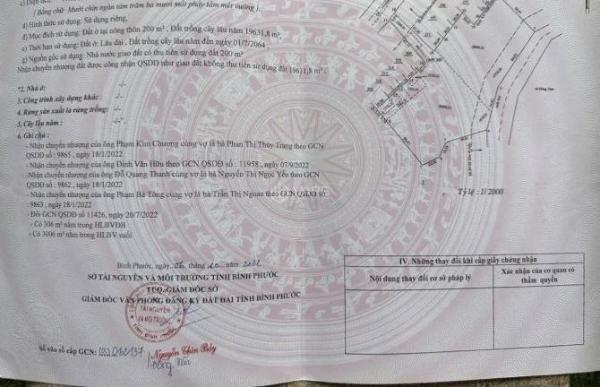 ( Bằng chữ: Mười chín ngàn tám trăm ba mươi mốt phẩy tám mét vuông )
d) Hình thức sử dụng: Sử dụng riêng,
đ) Mục đích sử dụng: Đất ở tại nông thôn 200 m², Đất trồng cây lâu năm 19631,8 m²,
e) Thời hạn sử dụng: Đất ở: Lâu dài, Đất trồng cây lâu năm đến ngày 01/7/2064
g) Nguồn gốc sử dụng: Nhà nước giao đất có thu tiền sử dụng đất 200 m²,
Nhận chuyển nhượng đất được công nhận QSDĐ như giao đất không thu tiền sử dụng đất 19631,8 m².
*2. Nhà ở: -/-
3. Công trình xây dựng khác: -/-
4. Rừng sản xuất là rừng trồng: -/-
5. Cây lâu năm: -/-
6. Ghi chú:
- Nhận chuyển nhượng của ông Phạm Kim Chương cùng vợ là bà Phan Thị Thùy Trang theo GCN
QSDĐ số: 9865, ngày 18/1/2022
- Nhận chuyển nhượng của ông Đinh Văn Hữu theo GCN QSDĐ số: 11958, ngày 07/9/2022
- Nhận chuyển nhượng của ông Đỗ Quang Thanh cùng vợ là bà Nguyễn Thị Ngọc Yến theo GCN
QSDĐ số: 9862, ngày 18/1/2022
- Nhận chuyển nhượng của ông Phạm Bá Tông cùng vợ là bà Trần Thị Nguan theo GCN QSDĐ số:
9863, ngày 18/1/2022
- Đổi GCN QSDĐ số 11426, ngày 20/7/2022
- Có 306 m² nằm trong HLBVĐB
- Có 3006 m² nằm trong HLBV suối
Tỷ lệ: 1/2000
Bình Phước, ngày 06 tháng 10 năm 2022
SỞ TÀI NGUYÊN VÀ MÔI TRƯỜNG TỈNH BÌNH PHƯỚC
TUQ. GIÁM ĐỐC SỞ
GIÁM ĐỐC VĂN PHÒNG ĐĂNG KÝ ĐẤT ĐAI TỈNH BÌNH PHƯỚC
SỞ
TÀI NGUYÊN
VÀ MÔI TRƯỜNG
Số vào sổ cấp GCN:
IV. Những thay đổi sau khi cấp giấy chứng nhận
Nội dung thay đổi và cơ sở pháp lý
Xác nhận của cơ quan có
thẩm quyền